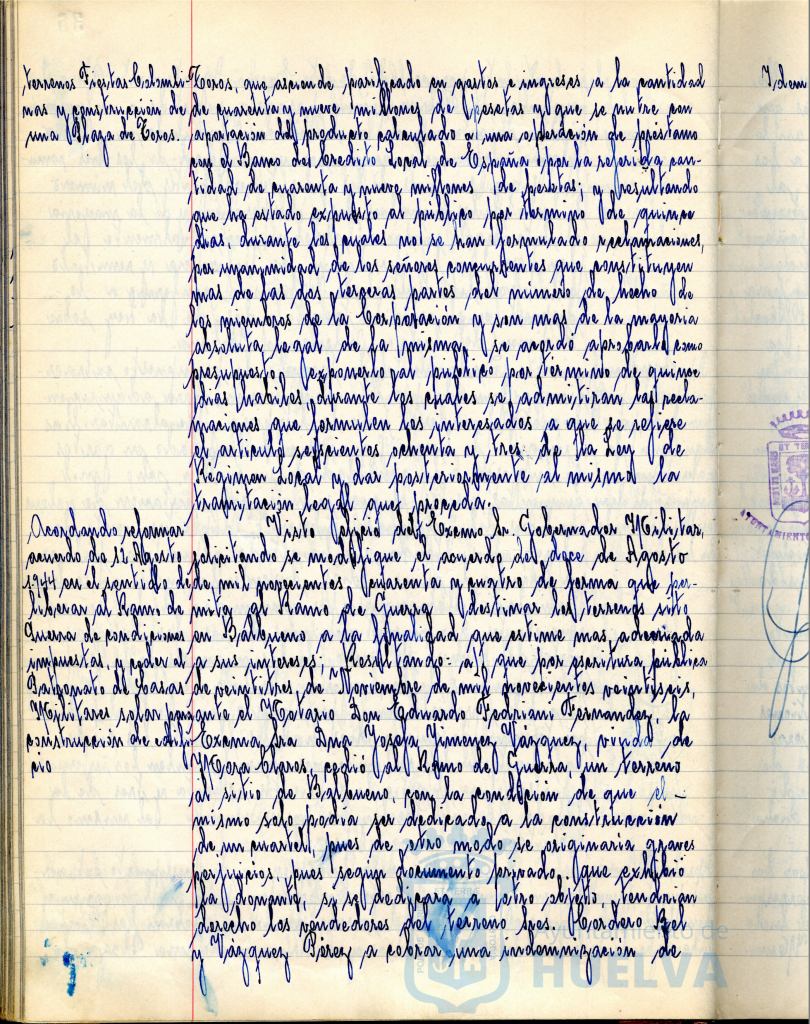 terrenos Fiestas Colombi-
nas y construcción de
una Plaza de Toros.
Toros, que asciende parificado en gastos e ingresos a la cantidad
de cuarenta y nueve millones de pesetas y que se nutre con
aportacion del producto calculado a una operación de préstamo
con el Banco de Credito Local de España por la referida can-
tidad de cuarenta y nueve millones de pesetas; y resultando
que ha estado expuesto al público por termino de quince
dias, durante los cuales no se han formulado reclamaciones,
por unanimidad de los señores concurrentes que constituyen
mas de las dos terceras partes del número de hecho de
los miembros de la Corporación y son mas de la mayoria
absoluta legal de la misma, se acordó aprobarlo como
presupuesto, exponerlo al público por termino de quince
dias habiles, durante los cuales se admitiran las recla-
maciones que formulen los interesados a que se refiere
el articulo seiscientos ochenta y tres de la Ley de
Régimen Local y dar posteriormente al mismo la
tramitación legal que proceda.
Acordando reformar
acuerdo de 12 Agosto
1944 en el sentido de
liberar al Ramo de
Guerra de condiciones
impuestas, y ceder al
Patronato de Casas
Militares solar para
construcción de edifi-
cio
Visto oficio del Excmo Sr. Gobernador Militar,
solicitando se modifique el acuerdo del doce de Agosto
de mil novecientos cuarenta y cuatro de forma que per-
mita al Ramo de Guerra destinar los terrenos sito
en Balbueno a la finalidad que estime mas adecuada
a sus intereses; Resultando: 1º que por escritura pública
de veintitres de Noviembre de mil novecientos veintiseis,
ante el Notario Don Eduardo Fedriani Fernandez, la
Excma Sra Dña Josefa Jimenez Vázquez, viuda de
Mora Claros, cedió al Ramo de Guerra, un terreno
al sitio de Balbueno, con la condicion de que el-
mismo solo podia ser dedicado a la construcción
de un cuartel, pues de otro modo se originaria graves
perjuicios, pues segun documento privado, que exhibió
la donante, si se dedicara a otro objeto, tendrian
derecho los vendedores del terreno Sres. Cordero Bel
y Vázquez Pérez a cobrar una indemnización de
Idem
AYUNTAMIENTO
Ayuntamiento de
HUELVA